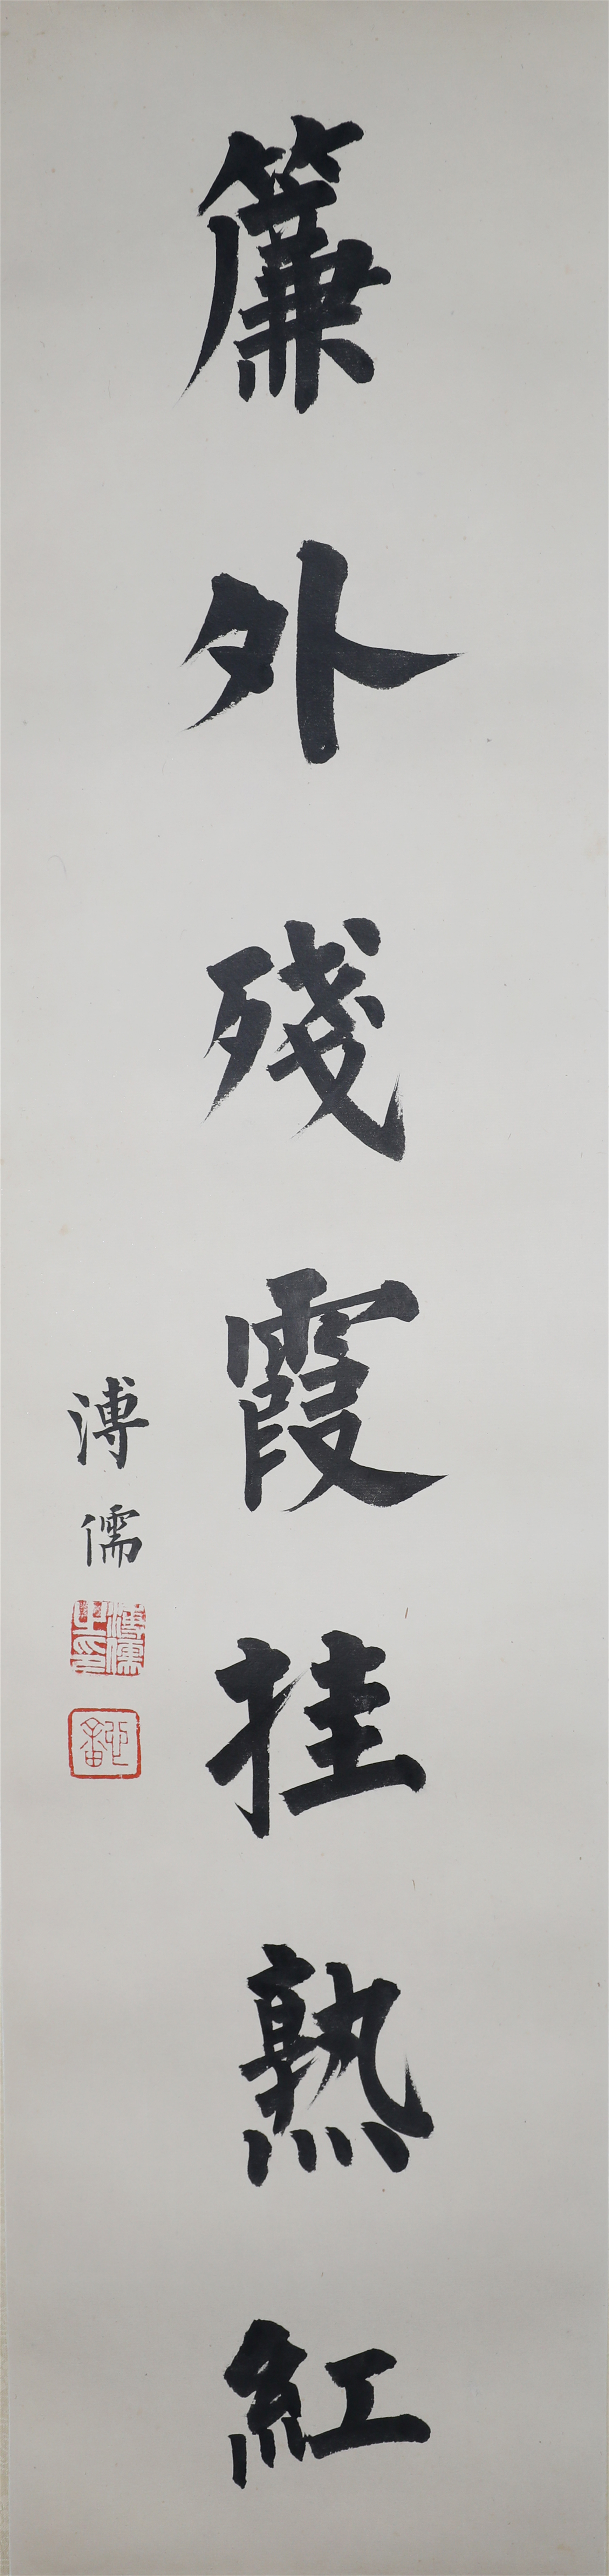 簾外殘霞挂熟紅
溥儒
溥儒之印